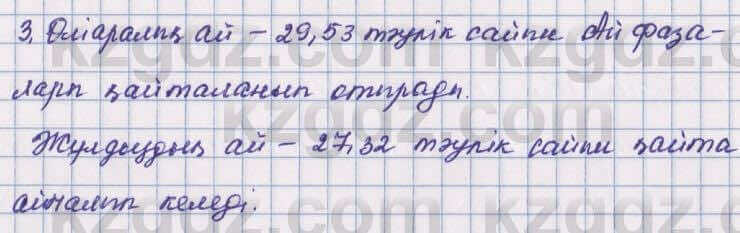 3. Өліаралық ай – 29,53 тәулік сайын Ай фаза-
лары қайталанып отырады.
Жұлдыздық ай – 27,32 тәулік сайын қайта
айналып келеді.
kzgdz.com